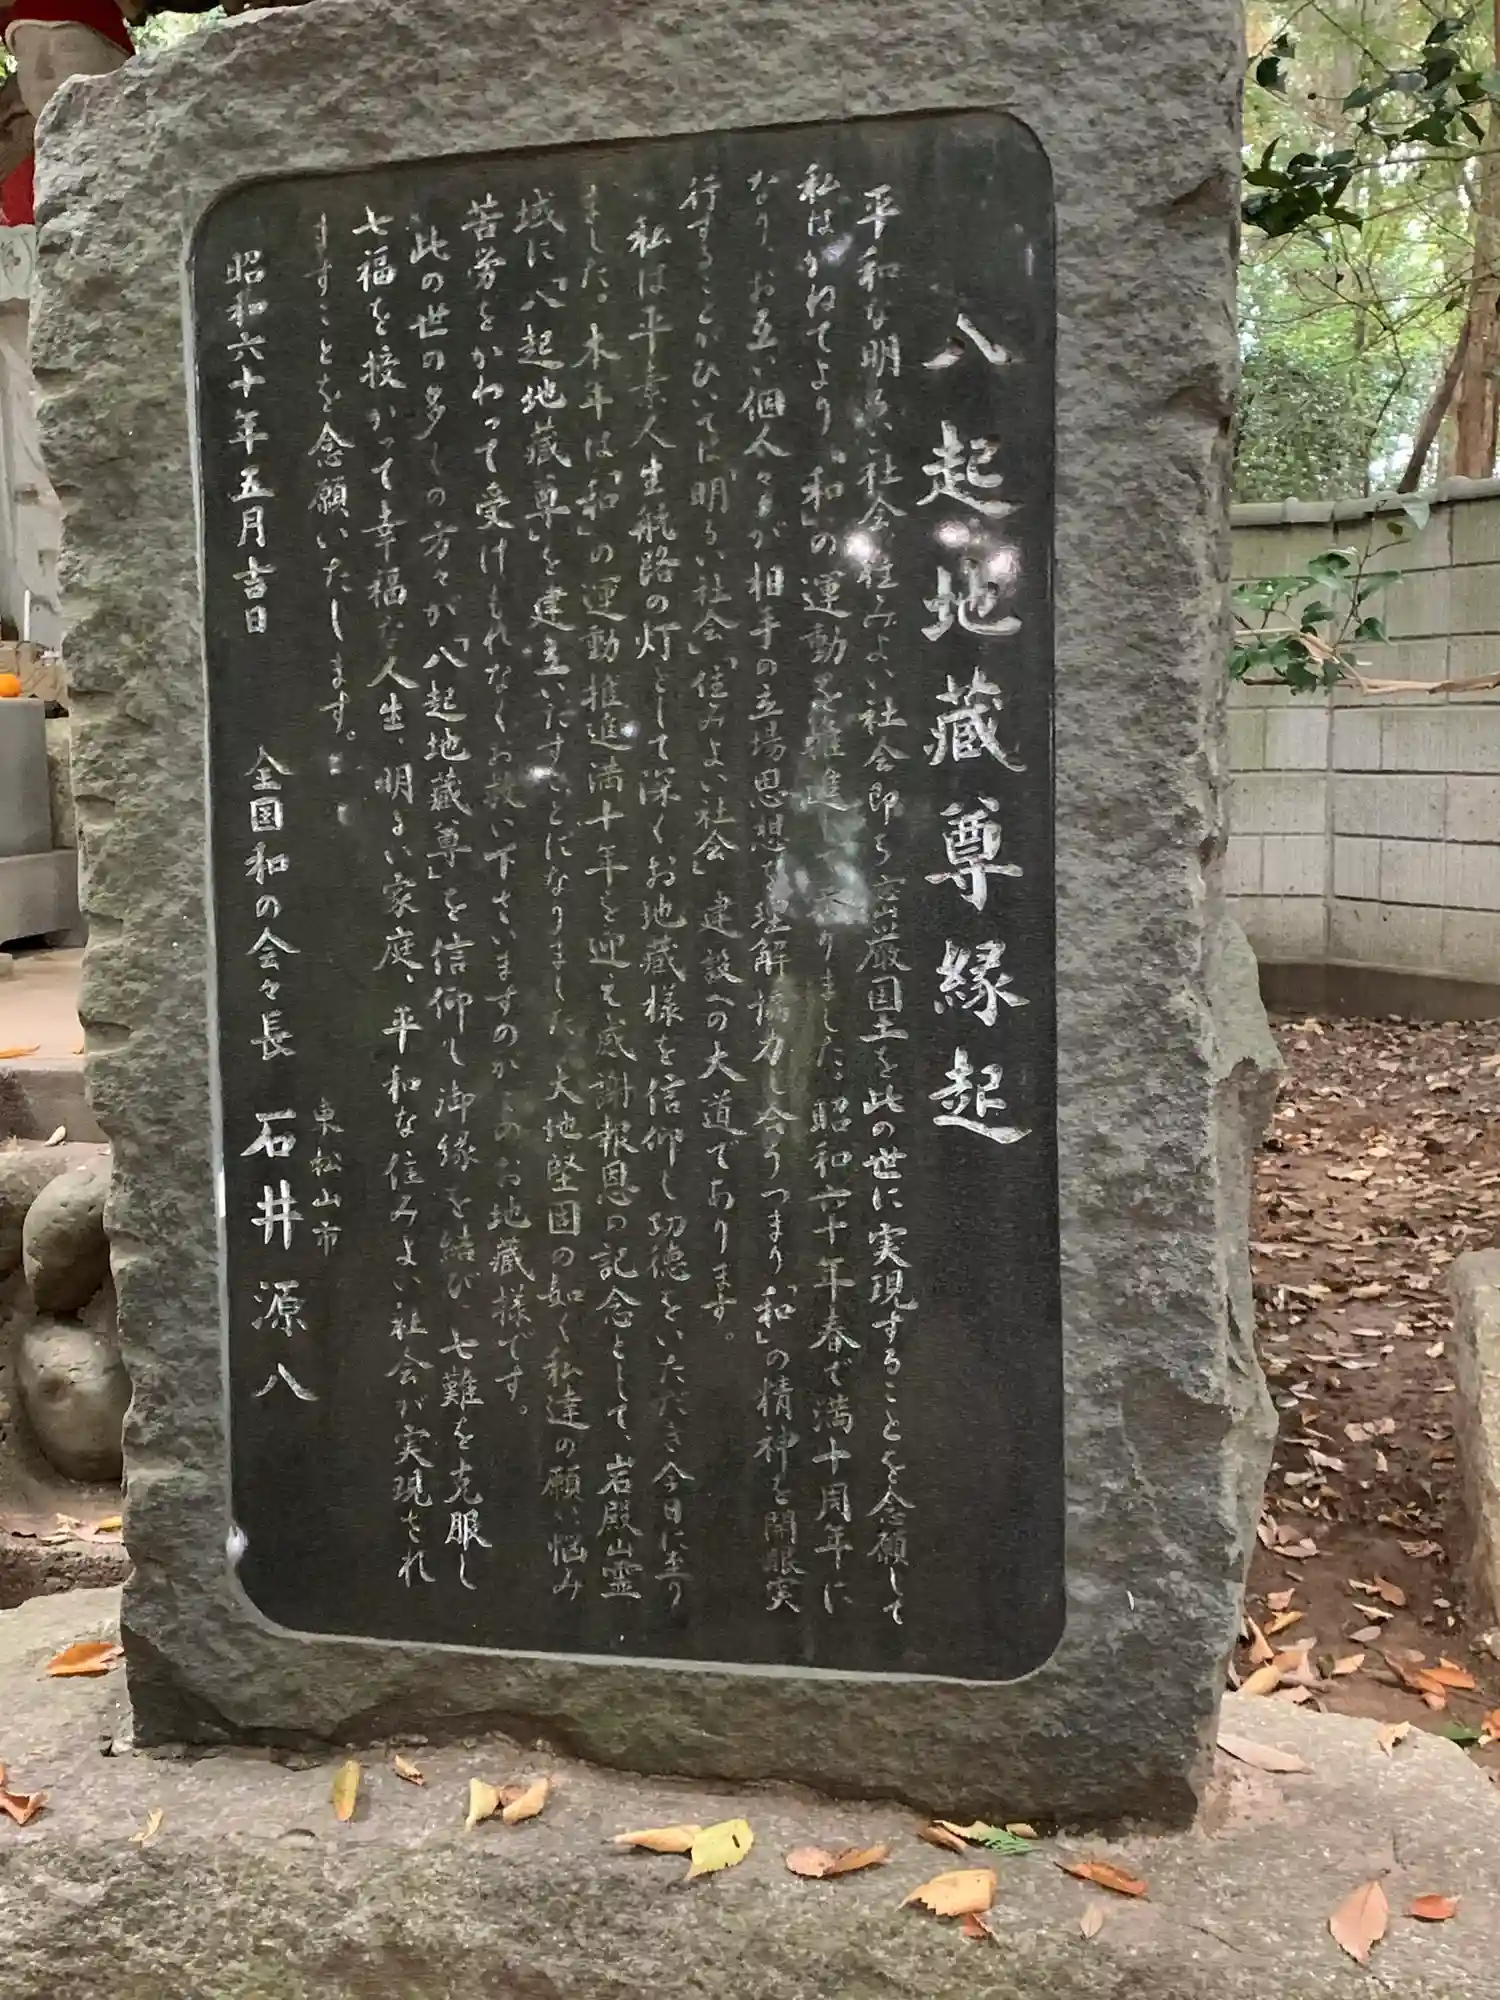 八起地蔵尊縁起
平和な明るい社会、住みよい社会即ち密厳国土を此の世に実現することを念願して
私はかねてより「和」の運動を推進して参りました。昭和六十年春で満十周年に
なり、お互い個人々々が相手の立場思想を理解協力し合うつまり「和」の精神を開眼実
行することがひいては「明るい社会」「住みよい社会」建設への大道であります。
私は平素人生航路の灯として深くお地蔵様を信仰し功徳をいただき今日に至り
ました。本年は「和」の運動推進満十年を迎え感謝報恩の記念として、岩殿山霊
域に「八起地蔵尊」を建立いたすことになりました。大地堅固の如く私達の願い悩み
苦労をかわって受けもれなくお救い下さいますのがこのお地蔵様です。
此の世の多くの方々が「八起地蔵尊」を信仰し御縁を結び、七難を克服し
七福を授かって幸福な人生、明るい家庭、平和な住みよい社会が実現され
ますことを念願いたします。
昭和六十年五月吉日
全国和の会々長 東松山市 石井源八